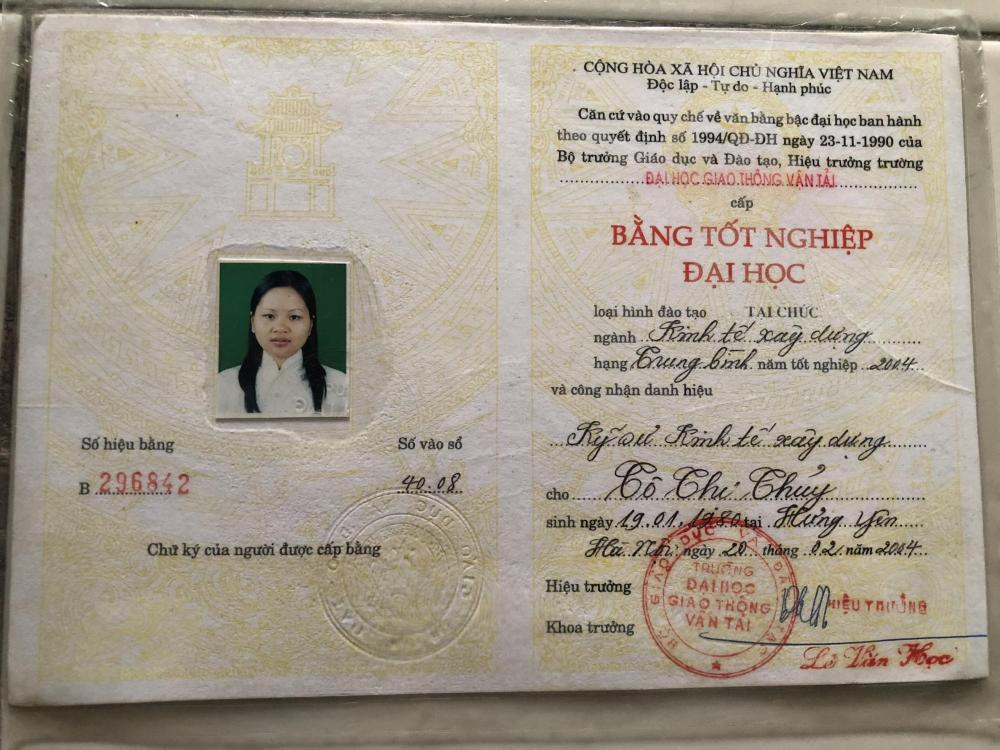 Số hiệu bằng
Số vào sổ
B 296842
40.08
Chữ ký của người được cấp bằng
CỘNG HÒA XÃ HỘI CHỦ NGHĨA VIỆT NAM
Độc lập - Tự do - Hạnh phúc
Căn cứ vào quy chế về văn bằng bậc đại học ban hành
theo quyết định số 1994/QĐ-ĐH ngày 23-11-1990 của
Bộ trưởng Giáo dục và Đào tạo, Hiệu trưởng trường
ĐẠI HỌC GIAO THÔNG VẬN TẢI
cấp
BẰNG TỐT NGHIỆP
ĐẠI HỌC
loại hình đào tạo TẠI CHỨC
ngành Kinh tế xây dựng
hạng Trung bình năm tốt nghiệp 2004
và công nhận danh hiệu
Kỹ sư Kinh tế xây dựng
cho Tô Thị Thủy
sinh ngày 19.01.1980 tại Hưng Yên
Hà Nội ngày 20 tháng 02 năm 2004
Hiệu trưởng
Khoa trưởng
TRƯỜNG
ĐẠI HỌC
GIAO THÔNG
VẬN TẢI
HIỆU TRƯỞNG
Lê Văn Học